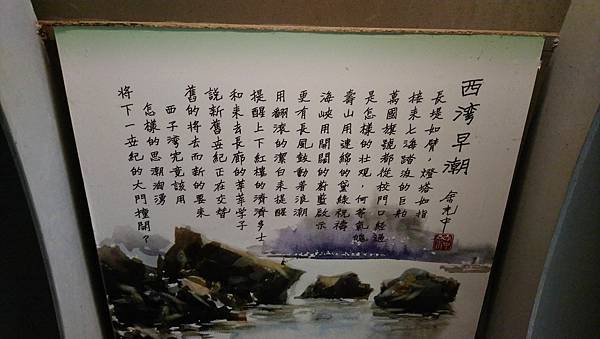 西湾早潮
余光中
長堤如臂，燈塔如指
接来七海踏浪的巨舶
萬國旗號都從校門口經過
是怎樣的壮观，何等氣魄
壽山用連綿的黛綠祝禱
海峡用開闊的蔚藍啟示
更有長風鼓動着浪潮
用翻滚的潔白来提醒
提醒上下紅樓的濟濟多士
和来去長廊的莘莘学子
説新舊世紀正在交替
舊的將去而新的要来
西子湾究竟該用
怎樣的思潮洶湧
將下一世紀的大門撞開？